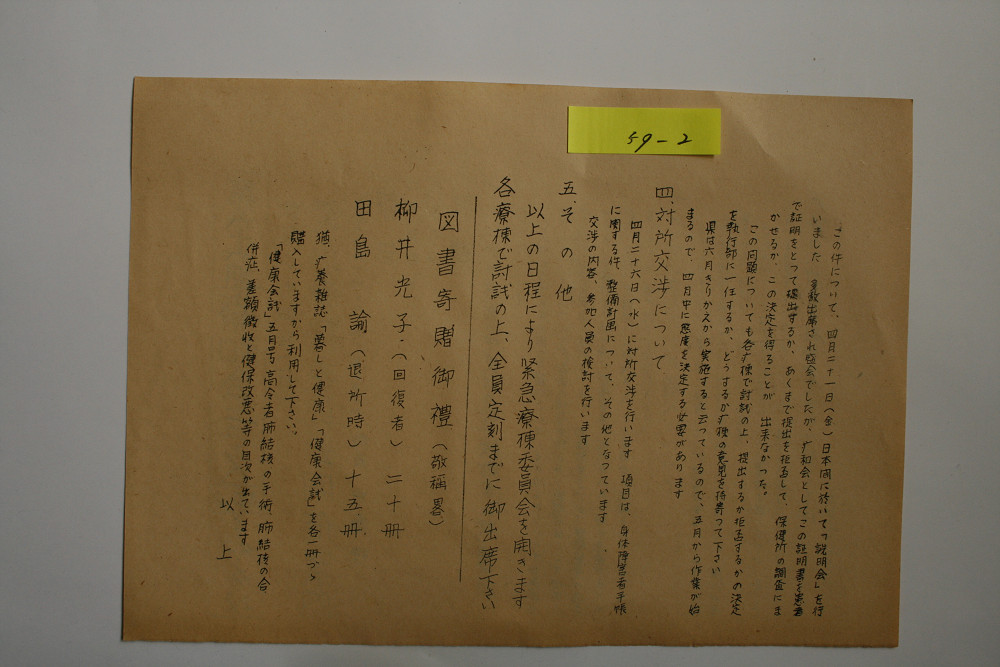 59-2
この件について、四月二十一日(金)日本間に於いて「説明会」を行
いました 多数出席され盛会でしたが、疒和会としてこの証明書を患者
で証明をとつて提出するか、あくまで提出を拒否して、保健所の調査にま
かせるか、この決定を得ることが 出来なかつた。
この問題についても各疒棟で討議の上、提出するか拒否するかの決定
を執行部に一任するか、どうするか疒棟の意見を持寄つて下さい
県は六月きりかえから実施すると云つているので、五月から作業が始
まるので、四月中に態度を決定する必要があります
四、対所交渉について
四月二十六日(水)に対所交渉を行います 項目は、身体障害者手帳
に関する件、整備計画について、その他となつています
交渉の内容、参加人員の検討を行います
五、その他
以上の日程により緊急療棟委員会を開きます
各療棟で討議の上、全員定刻までに御出席下さい
図書寄贈御禮(敬稱畧)
柳井光子(回復者)二十冊
田島 諭(退所時)十五冊
猶、疒養雑誌「暮しと健康」「健康会議」を各一冊づゝ
購入していますから利用して下さい。
「健康会議」五月号 高令者肺結核の手術、肺結核の合
併症、差額徴收と健保改悪等の目次が出ています
以上